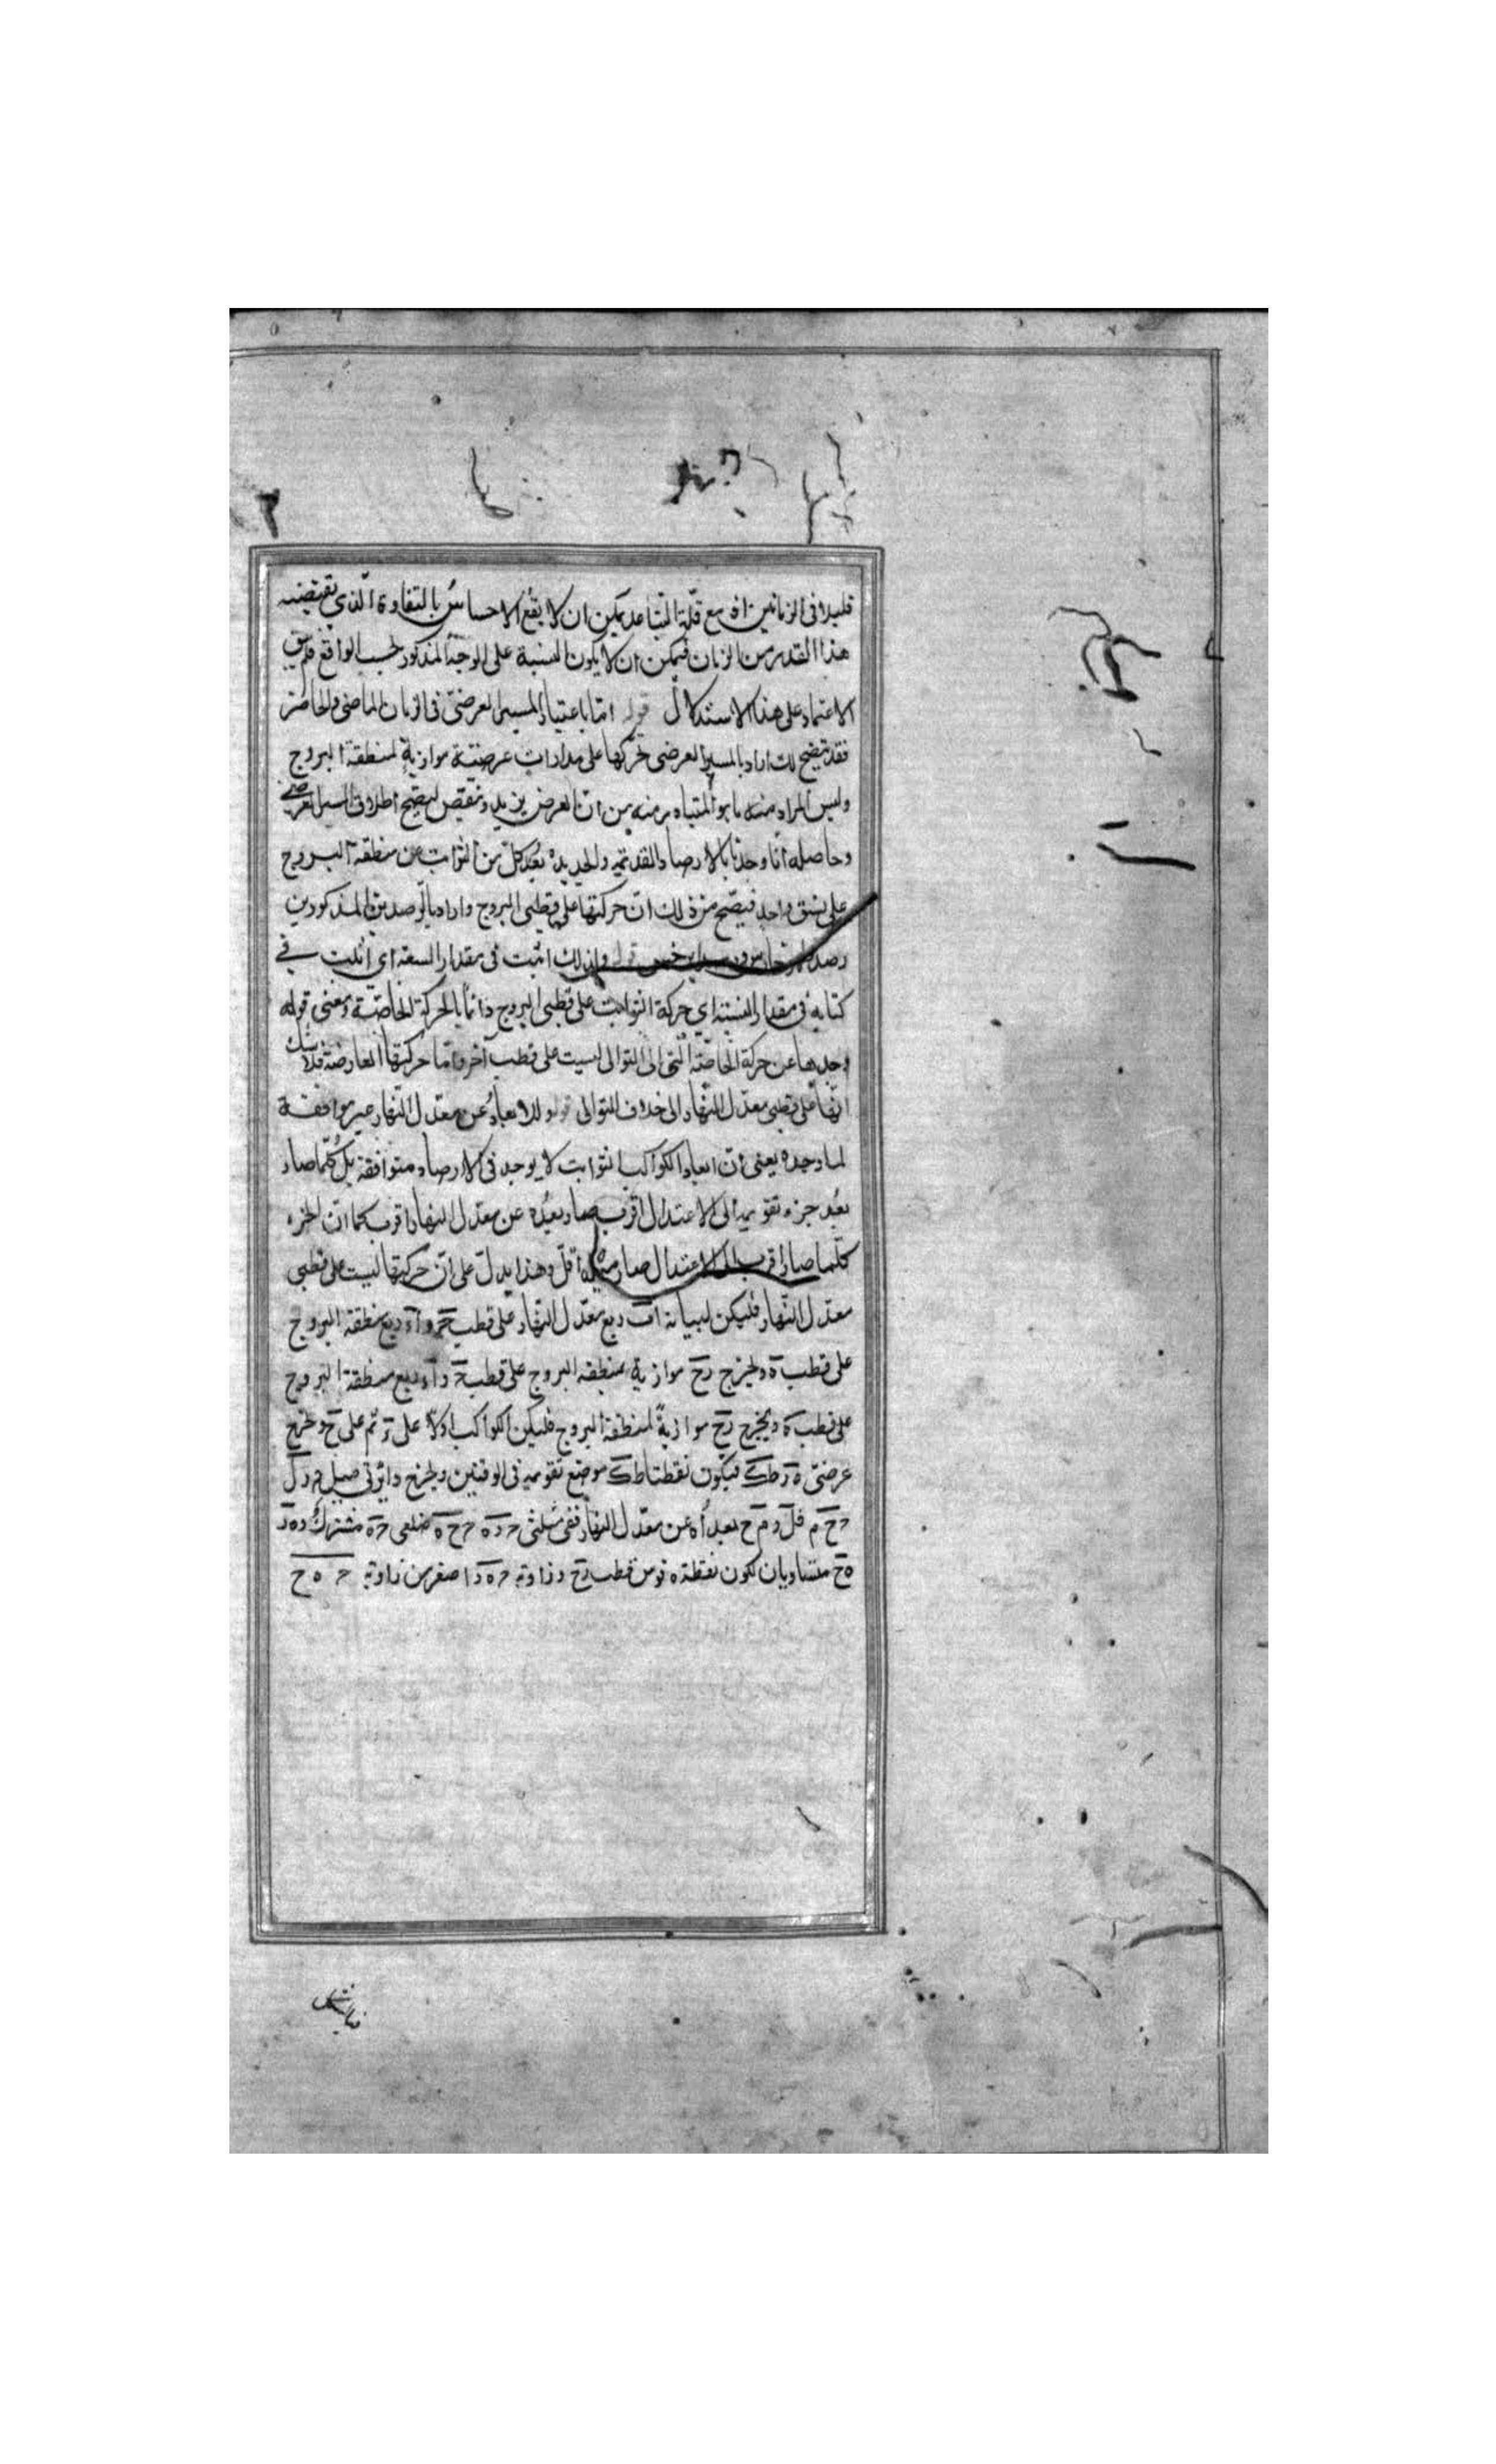 قليلا فى الزمانين اذ مع قلّة التباعد يمكن ان لا يقع الاحساس بالتفاوت الّذي تقتضيه
هذا القدر من الزمان فيمكن ان لا يكون النسبة على الوجه المذكور بحسب الواقع فلم يبق
الاعتماد على هذا الاستدلال قوله امّا باعتبار المسير العرضىّ فى الزمان الماضى والحاضر
فقد يتضح لك اراد بالمسير العرضى تحركها على مدارات عرضيّة موازية لمنطقة البروج
وليس المراد منه ما هو المتبادر منه من انّ العرض يزيد وينقص ليصحّ اطلاق المسير العرضى
وحاصله انّا وجدنا بالارصاد القديمة والجديدة بُعد كلّ من الثوابت عن منطقة البروج
على نسق واحد فيتضح من ذلك انّ حركتها على قطبى البروج واراد بالرصدين المذكورين
رصد قوله ولذلك اثبت فى مقدار السنة اى اثبت في
كتابه فى مقدار السنة اى حركة الثوابت على قطبى البروج دائما بالحركة الخاصّية ومعنى قوله
وحدها عن حركة الخاصّة الّتى الى التوالى ليست على قطب آخر وامّا حركتها العارضة فلا شك
انّها على قطبى معدّل النّهار الى خلاف التوالى قوله والابعاد عن معدّل النّهار غير موافقة
لما وجده يعنى انّ ابعاد الكواكب الثوابت لا يوجد فى الارصاد متوافقة بل كلّما صار
بُعد جزء تقويمه الى الاعتدال اقرب صار بُعده عن معدّل النهار اقرب كما انّ الجزء
كلّما صار اقرب الى الاعتدال صار ميله اقلّ وهذا يدلّ على انّ حركتها ليست على قطبى
معدّل النّهار فليكن لبيانه اب ربع معدّل النّهار على قطب ح و اء ربع منطقة البروج
على قطب ه وليخرج رح موازية لمنطقة البروج على قطب ح و اء ربع منطقة البروج
على قطب ه ويخرج رح موازيةً لمنطقة البروج فليكن الكواكب اوّلا على ر ثم على ح ويخرج
عرضىّ ه ر ط ك فيكون نقطتا ط ك موضع تقويمه فى الوقتين وليخرج دائرتى ميل ح ر ل
ح ح م فل ر م ح بعداه عن معدّل النهار ففى مثلثى ح ر ه ح ح ه ضلعى ح ه مشترك و ه ر
ه ح متساويان لكون نقطة ه قوس قطب رح وزاوية ح ه ر اصغر من زاوية ح ه ح